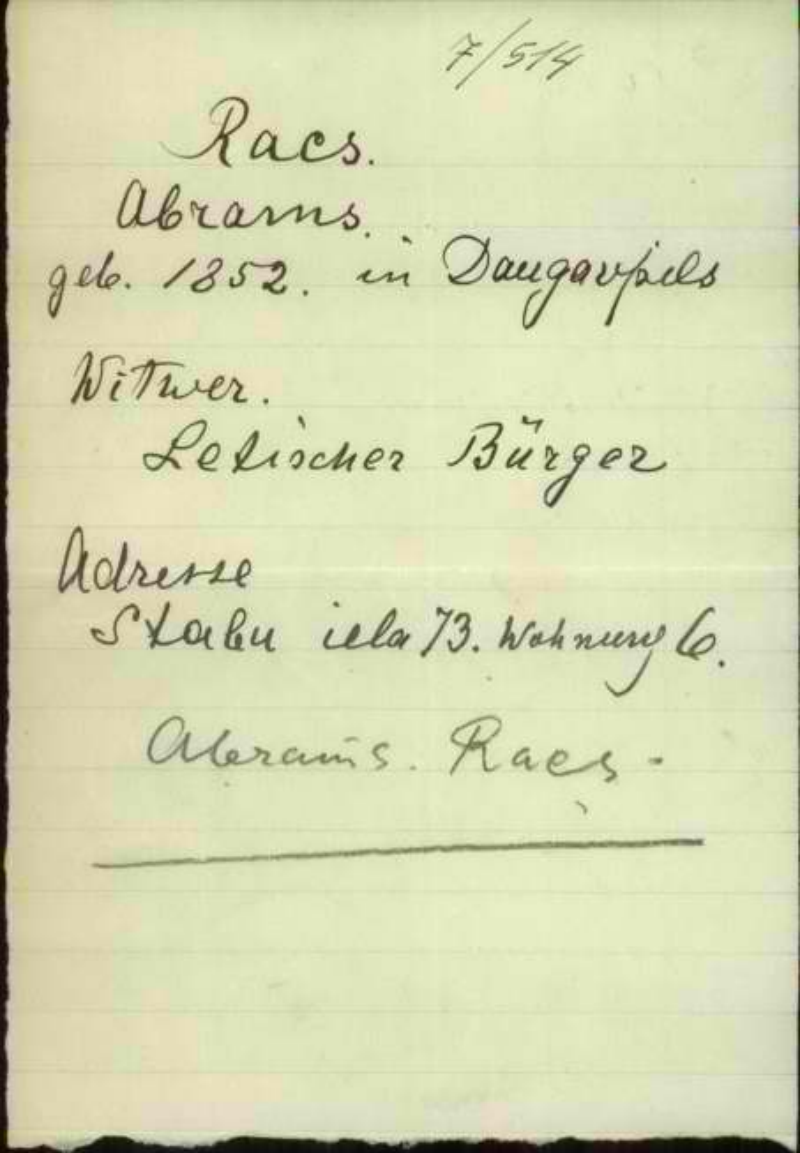 7/514
Racs.
Abrams.
geb. 1852. in Daugavpils
Witwer.
Letischer Bürger
Adresse
Stabu iela 73. Wohnung 6.
Abrams. Racs.